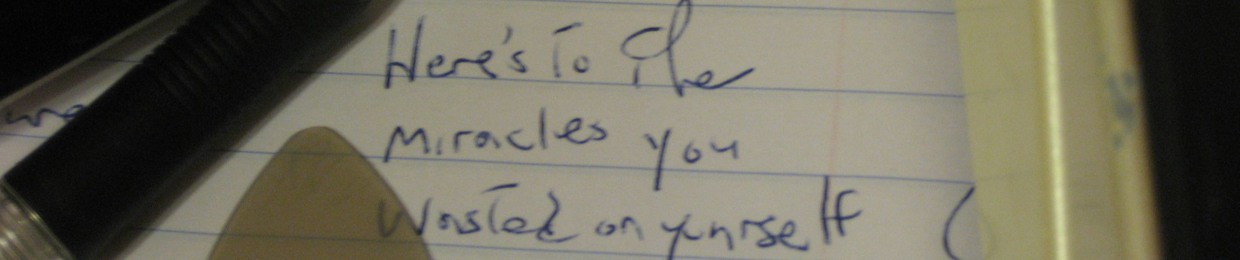 Here's To The
Miracles you
Wasted on yourself (